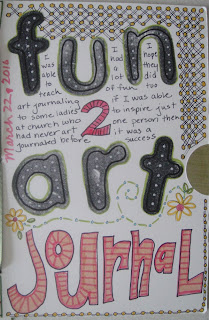 fun
March 22 • 2016
I
was
able
to
teach
art journaling
to some ladies
at church who
had never art
journaled before
I
had
a
lot
of fun
I
hope
they
did
too
if I was able
to inspire just
one person then
it was a
success
2
art
JOURNAL